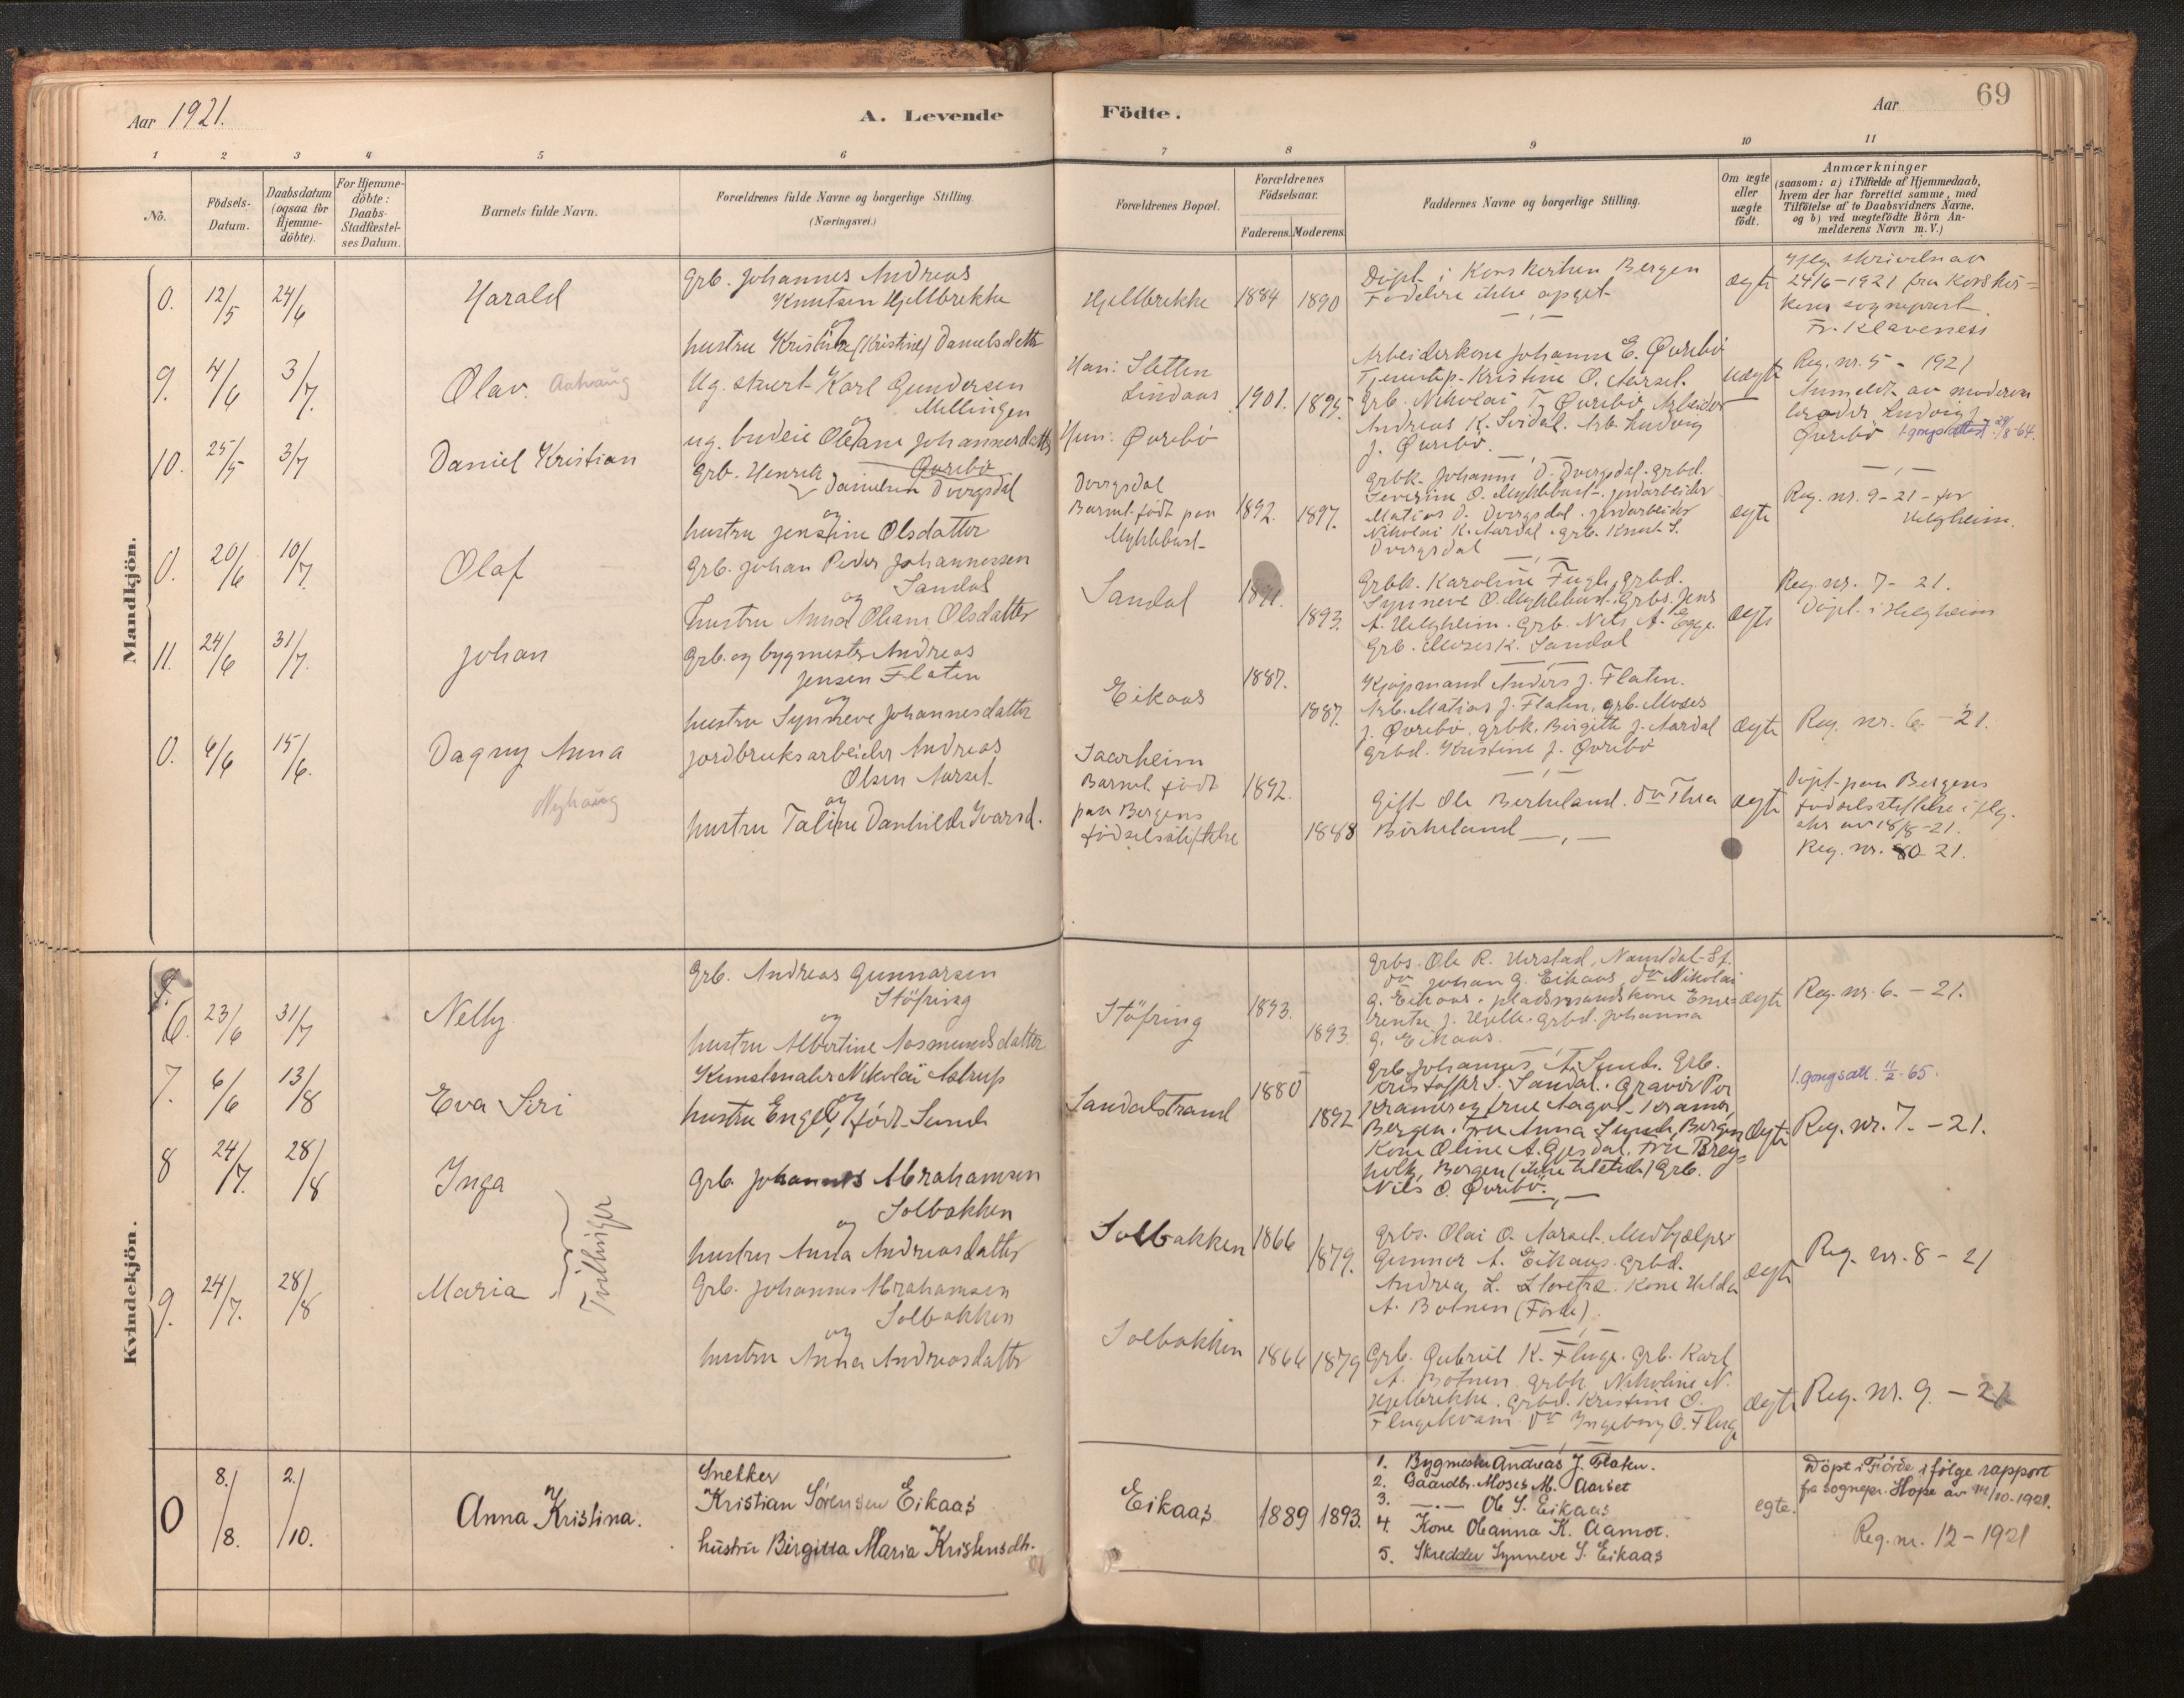 Aar 1921.
A. Levende Födte.
Aar
69
1 2 3 4 5 6 7 8 9 10 11
No.
Födsels-Datum.
Daabsdatum (ogsaa for Hjemme-döbte).
For Hjemme-döbte: Daabs-Stadfæstel-ses Datum.
Barnets fulde Navn.
Forældrenes fulde Navne og borgerlige Stilling.
(Næringsvei.)
Forældrenes Bopæl.
Forældrenes Födselsaar.
Faderens. Moderens.
Faddernes Navne og borgerlige Stilling.
Om ægte eller uægte födt.
Anmærkninger
(saasom: a) i Tilfælde af Hjemmedaab, hvem der har forrettet samme, med Tilföielse af to Daabsvidners Navne, og b) ved uægtefödte Börn An-melderens Navn m. V.)
Mandkjön.
0. 12/5 24/6 Harald
Grb. Johannes Andreas
Knutsen Hjellbrekke
og
hustru Kristine (Kristine) Danielsdatter
Hjellbrekke 1884 1890
Döpt i Korskirken Bergen
Faddere ikke opgit
ægte
ifølg. skrivelse av
24/6-1921 fra Korskir=
kens sogneprest
Fr. Klaveness
9. 4/6 3/7. Olav. Aahaug
Ug. stuert Karl Gundersen
Mellingen
og
ug. budeie Oleane Johannesdatter
Øvrebö
Han: Sletten
Lindaas
Hun: Øvrebö
1901. 1895.
Arbeiderkone Johanne E. Øvrebö
Tjenestep. Kristine O. Aarset.
Grb. Nikolai T. Øvrebö. Arbeider
Andreas K. Svidal. Arb. Ludvig
J. Øvrebö.
uægte
Reg. nr. 5 - 1921
Anmeldt av moderens
broder Ludvig J.
Øvrebö 1. gongs attest 29/8-64.
10. 25/5 3/7 Daniel Kristian
Grb. Henrik
Danielsen Dvergsdal
og
hustru Jensine Olsdatter
Dvergsdal
Barnet födt paa
Myklebust
1892. 1897.
Grbk. Johanne D. Dvergsdal. grbd.
Severine O. Myklebust. jordarbeider
Matias D. Dvergsdal. jordarbeider
Nikolai K. Aardal. grb. Knut S.
Dvergsdal
ægte
Reg. nr. 9-21 for
Helgheim.
0. 20/6 10/7 Olaf
Grb. Johan Peder Johannessen
Sandal
og
hustru Anna Oleane Olsdatter
Sandal 1891. 1893.
Grbk. Karoline Fugle, grbd.
Synneve O. Myklebust. Grbs. Jens
A. Helgheim. Grb. Nils A. Egge.
Grb. Moses K. Sandal
ægte
Reg. nr. 7- 21.
Döpt i Helgheim
11. 24/6 31/7. Johan
Grb. og bygmester Andreas
Jensen Flaten
og
hustru Synneve Johannesdatter
Eikaas 1887. 1887.
Kjøpmand Anders J. Flaten.
Arb. Matias J. Flaten, grb. Moses
J. Øvrebö, grbk. Birgitte J. Aardal
grbd. Kristine J. Øvrebö
ægte
Reg. nr. 6. - 21.
0. 6/6 15/6. Dagny Anna
Nyhaug
Jordbruksarbeider Andreas
Olsen Aarset
og
hustru Taline Danhilde Ivarsd.
Saarheim
Barnet födt
paa Bergens
födselsstiftelse
1892. 1888
Gift Ole Birkeland. do Thea
Birkeland
ægte
Döpt paa Bergens
födselsstiftelse iflg.
skr av 18/8-21.
Reg. nr. 80-21.
Kvindekjön.
6. 23/6 31/7 Nelly
Grb. Andreas Gunnarsen
Stöfring
og
hustru Albertine Aasmundsdatter
Stöfring 1893. 1893.
Grbs. Ole R. Herstad, Naustdal Sf.
do Johan G. Eikaas, do Nikolai
G. Eikaas. pladsmandskone Eme=
rentse J. Hjelle. grbd. Johanna
G. Eikaas.
ægte
Reg. nr. 6. - 21.
7. 6/6 13/8 Eva Siri
Kunstmaler Nikolai Astrup
og
hustru Engel, født Sunde
Sandalstrand 1880 1892
Grb. Johannes A. Sunde. Grb.
Kristoffer S. Sandal. Gravör Per
Kramer og frue Aagot Kramer,
Bergen. Frue Anna Sunde, Bergen
Kone Oline A. Gjesdal. Frue Breg=
holtz, Bergen (ikke tilstede) Grb.
Nils O. Øvrebö.
ægte
1. gongs att. 11/2-65.
Reg. nr. 7. - 21.
8 24/7. 28/8 Inga
Grb. Johannes Abrahamsen
Solbakken
og
hustru Anna Andreasdatter
Solbakken 1866 1879.
Grbs. Olai O. Aarset. Medhjælper
Gunnar A. Eikaas. grbd.
Andrea L. Storetræ. Kone Helda
A. Botnen (Förde).
ægte
Reg. nr. 8 - 21
Tvillinger
9. 24/7. 28/8 Maria
Grb. Johannes Abrahamsen
Solbakken
og
hustru Anna Andreasdatter
Solbakken 1866 1879
Grb. Gabriel K. Fluge. Grb. Karl
A. Botnen. grbk. Nikoline N.
Hjelbrekke. grbd. Kristine O.
Flugekvam. do Ingeborg O. Fluge
ægte
Reg. nr. 9. - 21
0 8./8. 2./10. Anna Kristina.
Snekker
Kristian Sørensen Eikaas
og
hustru Birgitta Maria Kristensdtr.
Eikaas 1889 1893.
1. Bygmester Andreas J. Flaten.
2. Gaardbr. Moses M. Aarset
3. —"— Ole S. Eikaas
4. Kone Oleanna K. Aamot.
5. Skredder Synneve S. Eikaas
egte.
Döpt i Förde i følge rapport
fra sognepr. Hope av 14/10-1921.
Reg. nr. 12 - 1921